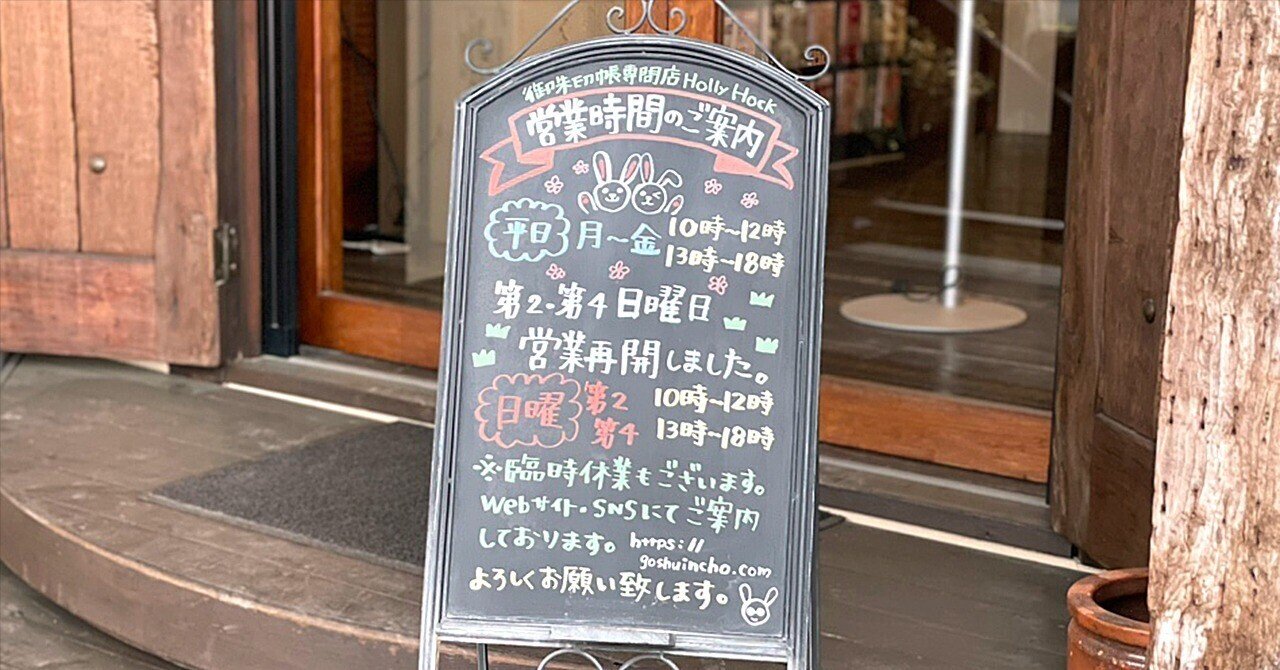 御朱印帳専門店Holly Hock
営業時間のご案内
平日 月～金 10時～12時
13時～18時
第2・第4日曜日
営業再開しました。
日曜 第2 10時～12時
第4 13時～18時
※臨時休業もございます。
Webサイト・SNSにてご案内
しております。https://
goshuincho.com
よろしくお願い致します。